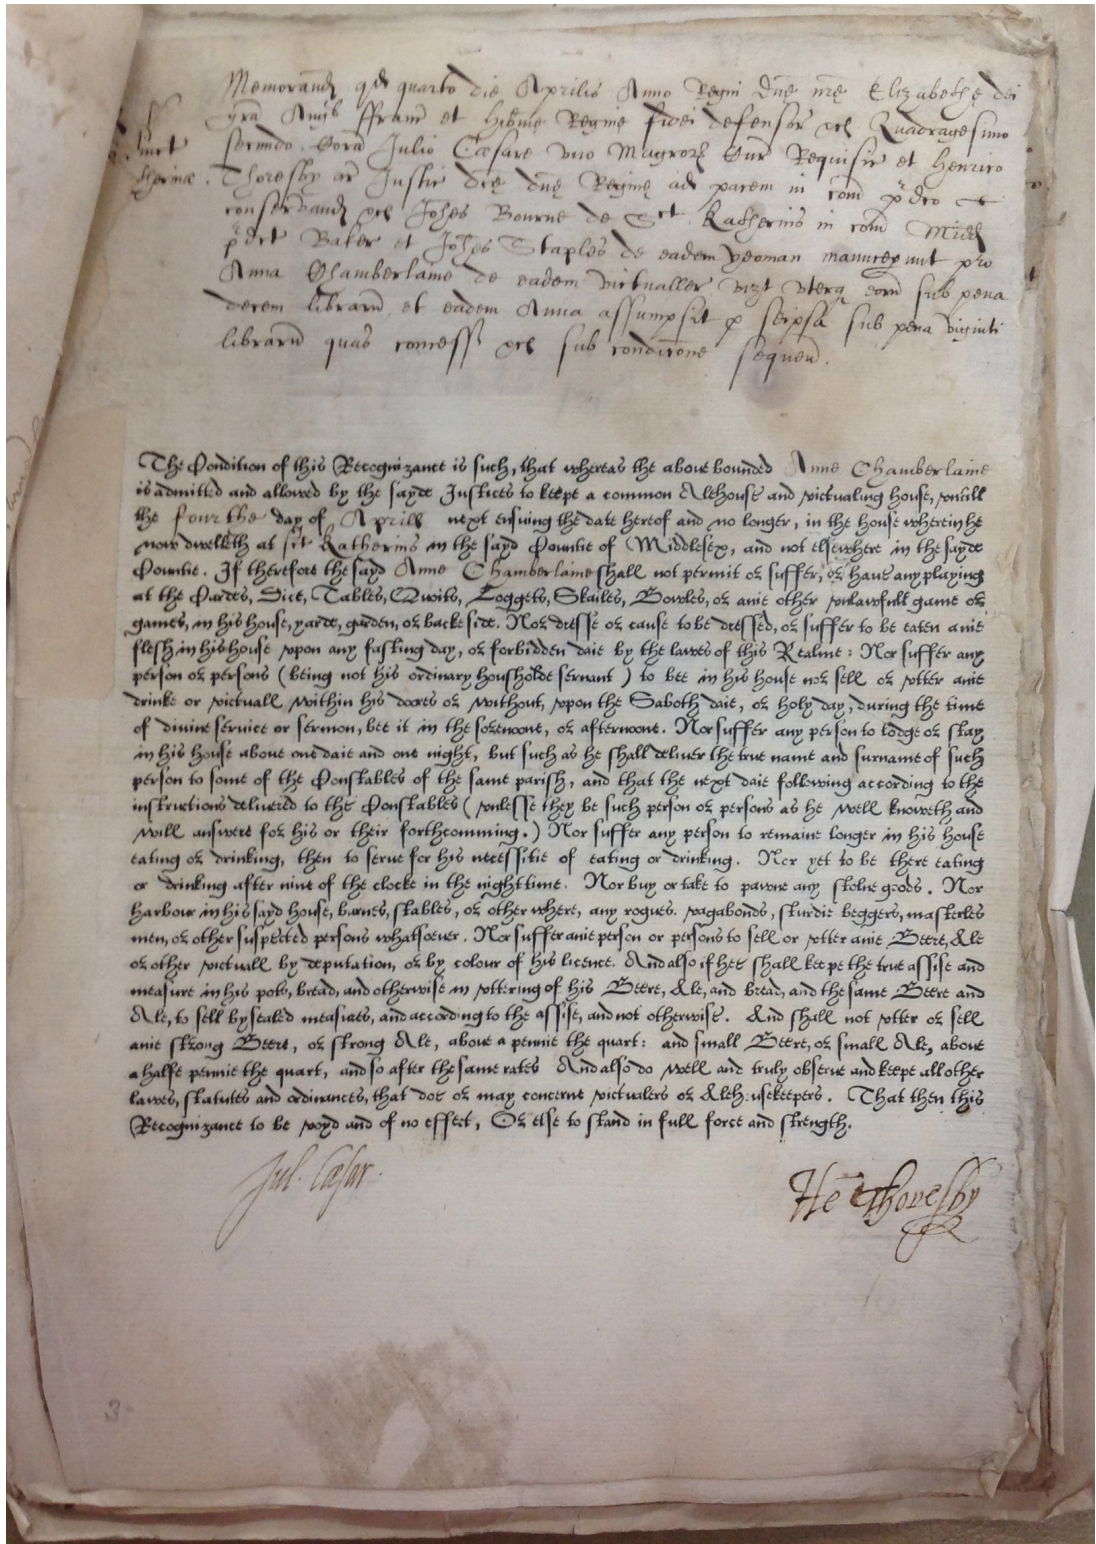 Memorand qd quarto die Aprilis Anno Regni Dne nre Elizabethe dei
gra Angl ffranc et Hibnie Regine fidei defensor &c Quadragesimo
secundo. Coram Julio Cæsare uno Magror Cur Requisic et Henrico
Thoresby ar Justic dce dne Regine ad pacem in com pdco
conservand &c Johes Bourne de Sct Katherins in com Midd
pdct Baker et Johes Staples de eadem yeoman manuceperunt pro
Anna Chamberlaine de eadem victualler vizt uterq eorum sub pena
decem librarum et eadem Anna assumpsit p seipsa sub pena viginti
librarum quas concess &c sub condicione sequen.
The Condition of this Recognizance is such, that whereas the above bounded Anne Chamberlaine
is admitted and allowed by the sayde Justices to keepe a common Alehouse and victualing house, vntill
the fourthe day of Aprill next ensuing the date hereof and no longer, in the house wherein he
now dwelleth at sct Katherins in the sayd Countie of Middlesex, and not elsewhere in the sayde
Countie. If therefore the sayd Anne Chamberlaine shall not permit or suffer, or haue any playing
at the Cardes, Dice, Tables, Quoits, Loggets, Skailes, Bowles, or anie other vnlawfull game or
games, in his house, yarde, garden, or backe side. Nor dresse or cause to be dressed, or suffer to be eaten anie
flesh in his house vpon any fasting day, or forbidden daie by the lawes of this Realme: Nor suffer any
person or persons (being not his ordinary housholde seruant) to bee in his house nor sell or vtter anie
drinke or victuall within his doores or without, vpon the Saboth daie, or holy day, during the time
of diuine seruice or sermon, bee it in the forenoone, or afternoone. Nor suffer any person to lodge or stay
in his house aboue one daie and one night, but such as he shall deliuer the true name and surname of such
person to some of the Constables of the same parish, and that the next daie following according to the
instructions deliuered to the Constables (vnlesse they be such person or persons as he well knoweth and
will answere for his or their forthcomming.) Nor suffer any person to remaine longer in his house
eating or drinking, then to serue for his necessitie of eating or drinking. Nor yet to be there eating
or drinking after nine of the clocke in the night time. Nor buy or take to pawne any stolne goods. Nor
harbour in his sayd house, barnes, stables, or other where, any rogues. vagabonds, sturdie beggers, masterles
men, or other suspected persons whatsoeuer. Nor suffer anie person or persons to sell or vtter anie Beere, Ale
or other victuall by deputation, or by colour of his licence. And also if hee shall keepe the true assise and
measure in his pots, bread, and otherwise in vttering of his Beere, Ale, and bread, and the same Beere and
Ale, to sell by sealed measures, and according to the assise, and not otherwise. And shall not vtter or sell
anie strong Beere, or strong Ale, aboue a pennie the quart: and small Beere, or small Ale, aboue
a halfe pennie the quart, and so after the same rates And also do well and truly obserue and keepe all other
lawes, statutes and ordinances, that doe or may concerne victualers or Alehousekeepers. That then this
Recognizance to be voyd and of no effect, Or else to stand in full force and strength.
Jul. Cæsar.
He Thoresby
3